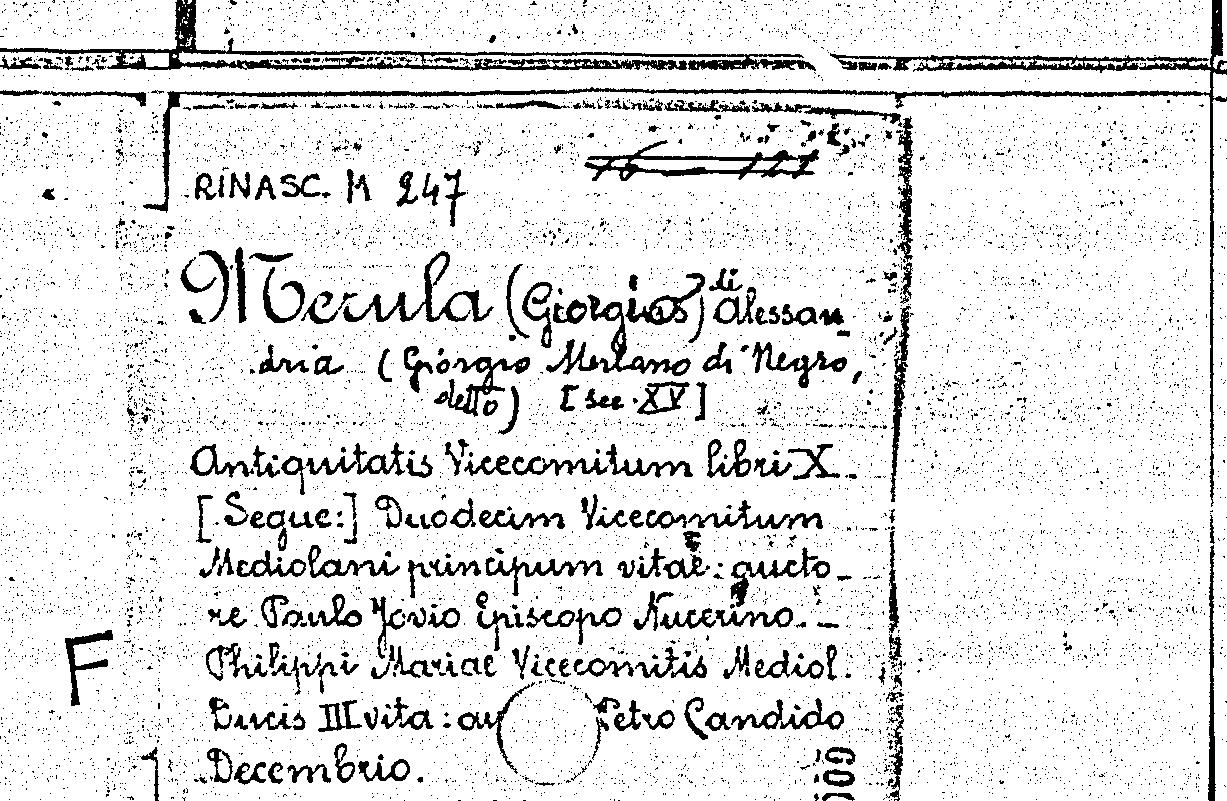 16 — 121
RINASC. M 247
Merula (Giorgio) di Alessan-
dria (Giorgio Merlano di Negro,
detto) [sec. XV]
Antiquitatis Vicecomitum libri X.
[Segue:] Duodecim Vicecomitum
Mediolani principum vitae: aucto-
re Paulo Jovio Episcopo Nucerino. -
Philippi Mariae Vicecomitis Mediol.
F
Ducis III vita: au Petro Candido
Decembrio.